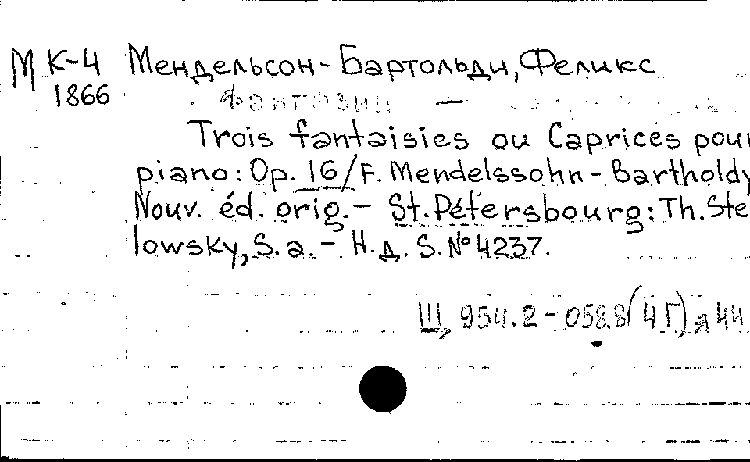 М К-4 Мендельсон-Бартольди, Феликс
1866
Фантазии —
Trois fantaisies ou Caprices pour
piano: Op. 16/F. Mendelssohn-Bartholdy
Nouv. éd. orig. - St. Pétersbourg: Th. Ste
lowsky, S. a. - Н. д. S. № 4237.
Щ 954.2-058.8(4Г) я 44